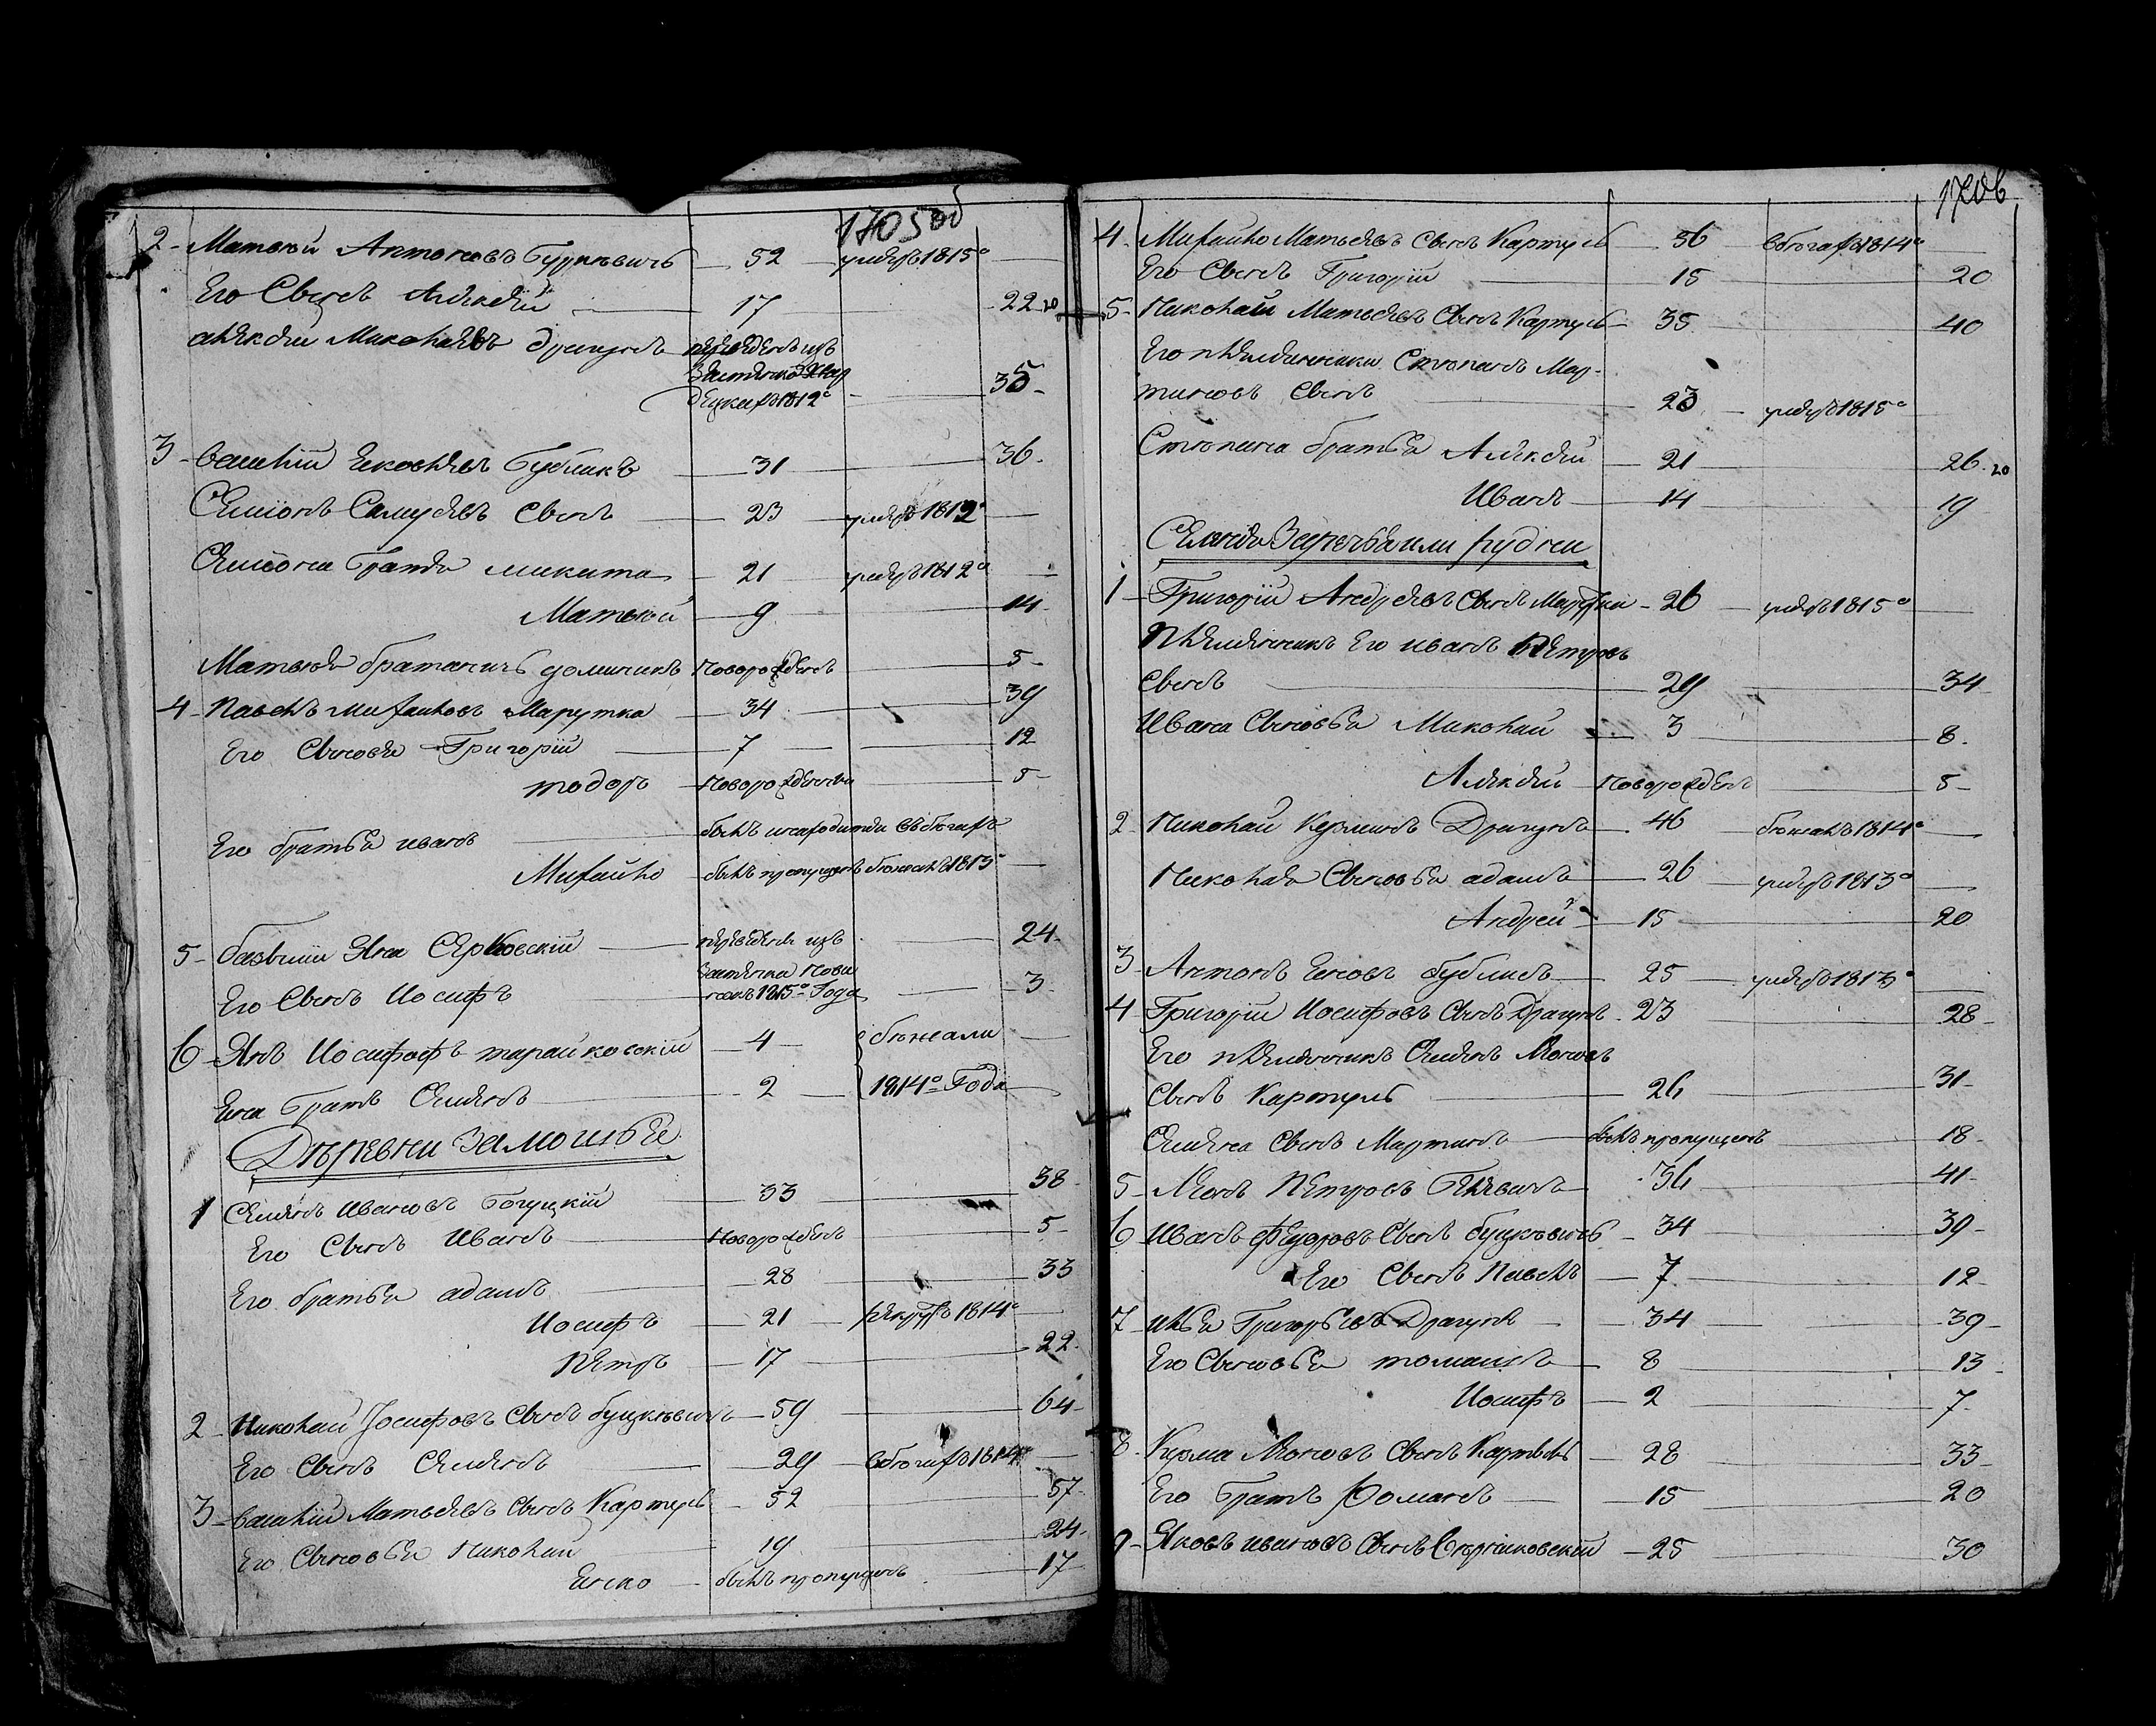 1705 об
2 - Матвѣй Антоновъ Буцкевичъ — 52 — умеръ 1815го —
Его Сынъ Алексѣй — 17 — 22
Алексѣй Миколаевъ Драгунъ переведенъ изъ
застенка
1812го — 35 -
3 - Василій Бубликъ — 31 — 36 -
Семіонъ Самуелевъ Сынъ — 23 — умеръ 1812го —
Семіона Братья микита — 21 — умеръ 1812го —
Матвѣй — 9 — 14 -
Матвѣя братаничъ доминикъ новорожденъ — 5 -
4 - Павелъ михайловъ Марутка — 34 — 39
Его Сыновья Григорій — 7 — 12
тодоръ — новорожденны — 5 -
Его братья иванъ — былъ въ бѣгахъ
Михайло — былъ пропущенъ бѣжалъ 1813го —
5 - Яна — переведенъ изъ — 24 -
застенка
Его Сынъ Иосифъ — 1815го Года — 3 -
6 - Янъ Иосифофъ тарайковскій — 4 — бѣжали —
Яна Братъ Семенъ — 2 — 1814го Года —
Дѣревни Замошье
1 Семенъ Ивановъ Богуцкій — 33 — 38 -
Его Сынъ Иванъ — новорожденъ — 5 -
Его братья адамъ — 28 — 33
Иосифъ — 21 — рекрутъ 1814го —
Петръ — 17 — 22 -
2 - Николай Іосифовъ Сынъ буцкевичъ — 59 — 64 -
Его Сынъ Семенъ — 29 — въ бѣгахъ 1814го —
3 - Василій Матвеевъ Сынъ Картуль — 52 — 57 -
Его Сыновья Николай — 19 — 24 -
Янко — былъ пропущенъ — 17 -
1706
4 - Михайло Матвеевъ Сынъ Картуль — 56 — въ бѣгахъ 1814го —
Его Сынъ Григорій — 15 — 20
5 - Николай Матвеевъ Сынъ Картуль — 35 — 40
Его племянники Степанъ Мар-
тиновъ Сынъ — 23 — умеръ 1815го
Степана братья Алексѣй — 21 — 26
Иванъ — 14 — 19
Селенія Заречья или рудни
1 - Григорій Андреевъ Сынъ Марутка - 26 — умеръ 1815го —
Племянникъ Его иванъ Петровъ
Сынъ — 29 — 34
Ивана Сыновья Миколай — 3 — 8 -
Алексѣй — новорожденъ — 5 -
2 - Николай Кузминъ Драгунъ — 46 — бѣжалъ 1814го —
Николая Сыновья адамъ — 26 — умеръ 1813го —
Андрей — 15 — 20
3 - Антонъ Яновъ бубликъ — 25 — умеръ 1813го —
4 - Григорій Иосифовъ Сынъ Драгунъ - 23 — 28 -
Его племянникъ Семенъ Леоновъ
Сынъ Картуль — 26 — 31 -
Семена Сынъ Мартинъ — былъ пропущенъ — 18 -
5 - Леонъ Петровъ — 36 — 41 -
6 Иванъ Федоровъ Сынъ буцкевичъ — 34 — 39 -
Его Сынъ Павелъ — 7 — 12
7 - илья Григорьевъ Драгунъ — 34 — 39 -
Его Сыновья томашъ — 8 — 13
Иосифъ — 2 — 7 -
8 - Кузма Леоновъ Сынъ Картель — 28 — 33 -
Его Братъ Романъ — 15 — 20
9 - Яковъ ивановъ Сынъ — 25 — 30